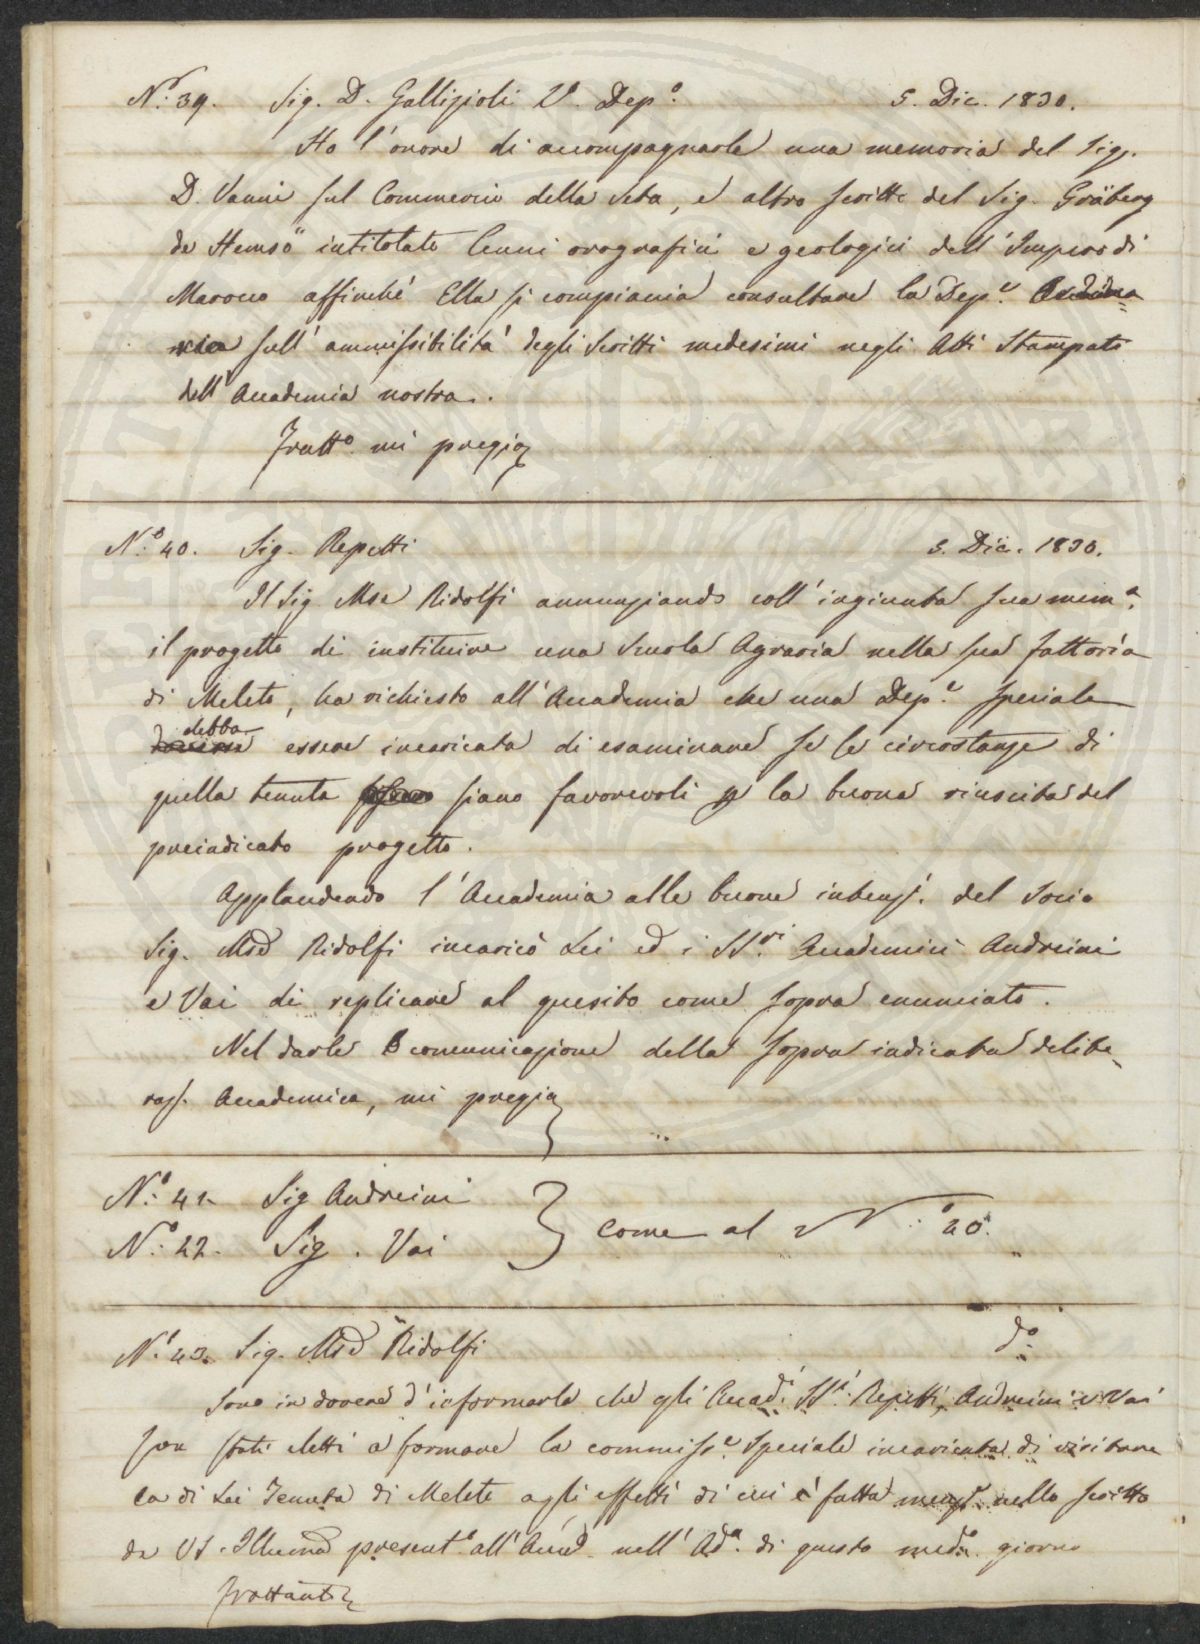 N.º 39. Sig. D. Gallizioli V.º Dep.º 5. Dic. 1830.
Ho l'onore di accompagnarle una memoria del Sig.
D. Vanni sul Commercio della Seta, e altro scritto del Sig. Gräberg
da Hemsö intitolato Cenni orografici e geologici dell'Impero di
Marocco affinché Ella si compiaccia consultare la Dep.e Ordina=
ria sull'ammissibilità degli Scritti medesimi negli Atti Stampati
dell'Accademia nostra.
Fratt.º mi pregio
N.º 40. Sig. Repetti 5. Dic. 1830.
Il Sig. Mse Ridolfi annunziando coll'ingiunta sua mem.a
il progetto di instituire una Scuola Agraria nella sua fattoria
di Meleto, ha richiesto all'Accademia che una Dep.e Speciale
debba
essere incaricata di esaminare se le circostanze di
quella tenuta siano favorevoli p la buona riuscita del
preindicato progetto.
Applaudendo l'Accademia alle buone intenz.i del Socio
Sig. Mse Ridolfi incaricò Lei ed i SS.ri Accademici Andreini
e Vai di replicare al quesito come sopra enunciato.
Nel darle comunicazione della sopra indicata delibe=
raz. Accademica, mi pregio
N.º 41. Sig Andreini
N.º 42. Sig. Vai } Come al N.º 40.
N.º 43. Sig. Mse Ridolfi d.º
Sono in dovere d'informarla che gli Accad.i SS.i Repetti, Andreini e Vai
son stati eletti a formare la commiss.e Speciale incaricata di visitare
la di Lei Tenuta di Meleto agli effetti di cui è fatta menz.e nello scritto
da VS. Illuma present.º all'Accad. nell'Ad.a di questo med.º giorno
frattanto